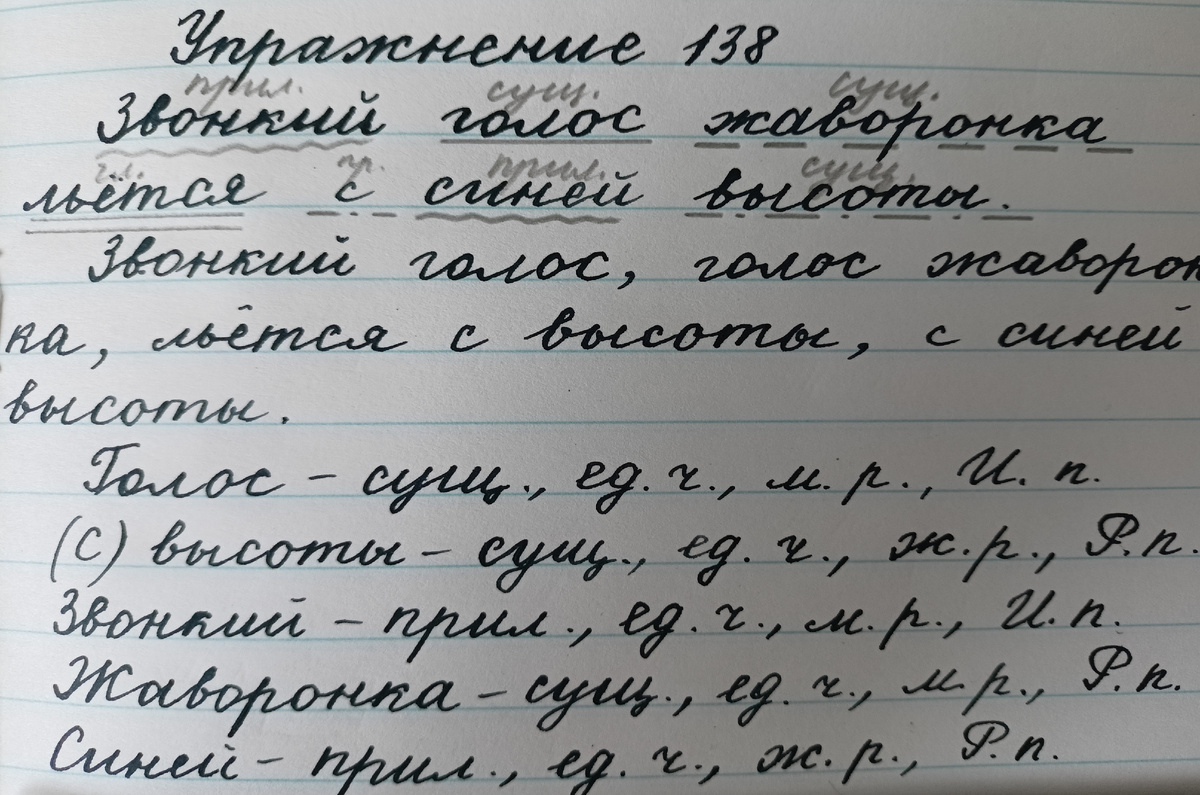 Упражнение 138
прил. сущ. сущ.
Звонкий голос жаворонка
гл. пр. прил. сущ.
льётся с синей высоты.
Звонкий голос, голос жаворон
ка, льётся с высоты, с синей
высоты.
Голос – сущ., ед. ч., м. р., И. п.
(С) высоты – сущ., ед. ч., ж. р., Р. п.
Звонкий – прил., ед. ч., м. р., И. п.
Жаворонка – сущ., ед. ч., м. р., Р. п.
Синей – прил., ед. ч., ж. р., Р. п.